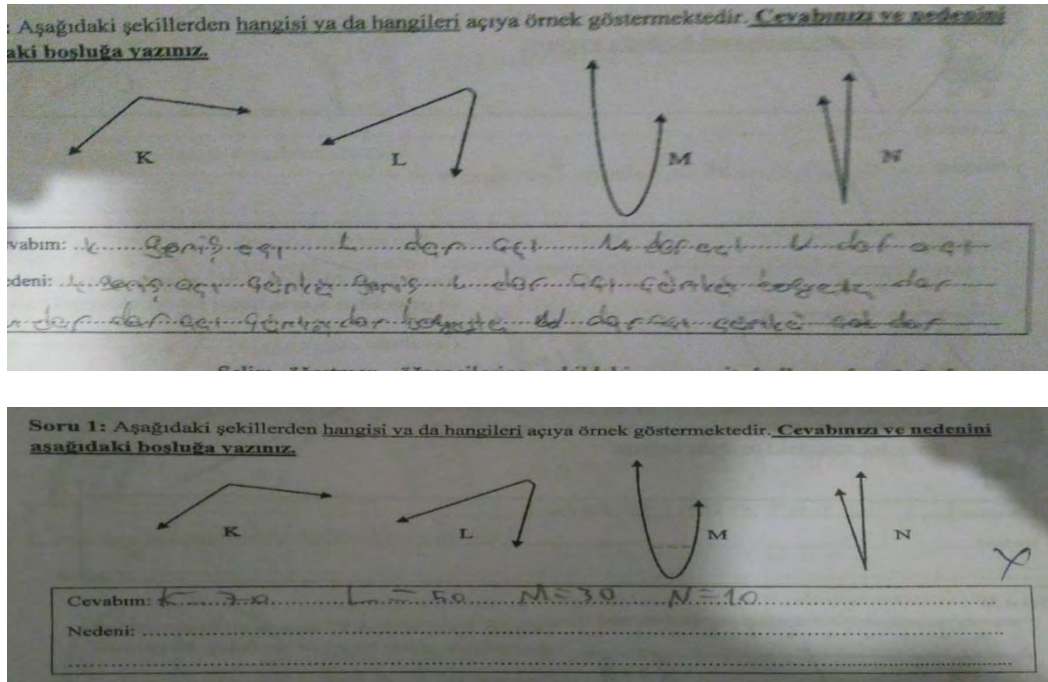 : Aşağıdaki şekillerden hangisi ya da hangileri açıya örnek göstermektedir. Cevabınızı ve nedenini
aki boşluğa yazınız.
K L M N
vabım: k geniş açı L dar açı M dar açı N dar açı
edeni: k geniş açı çünkü geniş L dar açı çünkü dar
dar dar açı çünkü dar dar açı çünkü çok dar
Soru 1: Aşağıdaki şekillerden hangisi ya da hangileri açıya örnek göstermektedir. Cevabınızı ve nedenini
aşağıdaki boşluğa yazınız.
K L M N
Cevabım: K = 70 L = 50 M = 30 N = 10
Nedeni: